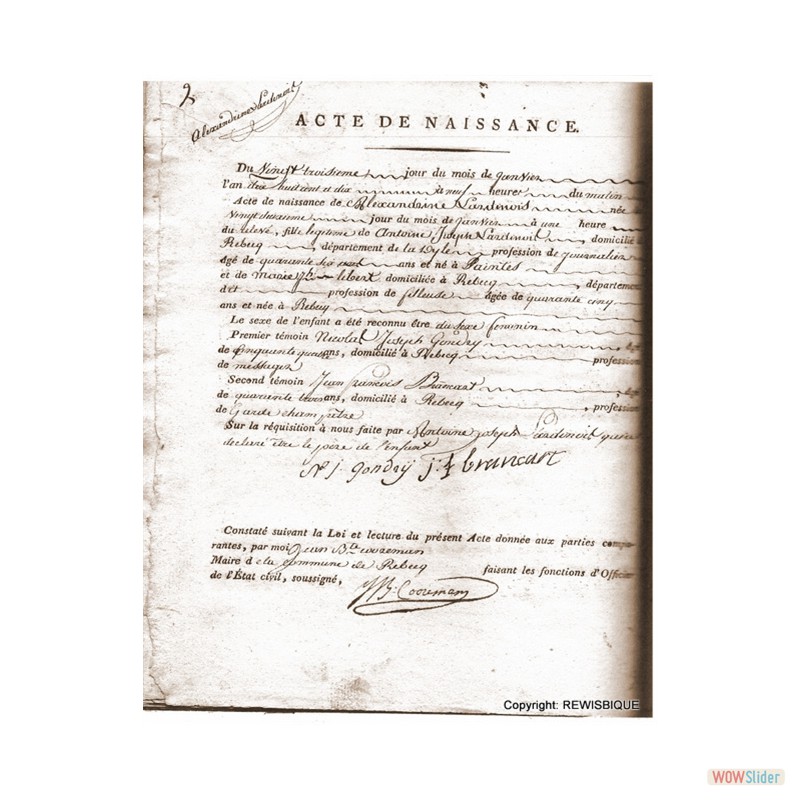 2
Alexandrine Lardenoit
ACTE DE NAISSANCE.
Du Vingt troisieme jour du mois de janvier
l'an dix huit cent et dix à neuf heures du matin
Acte de naissance de Alexandrine Lardenois née
Vingt deuxieme jour du mois de janvier à une heure
du relevé, fille legitime de Antoine Joseph Lardenoit, domicilié à
Rebecq, département de la Dyle profession de journalier
âgé de quarante six ans et né à Saintes
et de Marie Jh. libert domiciliée à Rebecq, départemen
d'et profession de fileuse âgée de quarante cinq
ans et née à Rebecq
Le sexe de l'enfant a été reconnu être du sexe feminin
Premier témoin Nicolas Joseph Gondry, âgé
de Cinquante ans, domicilié à Rebecq profession
de messager
Second témoin Jean francois Brancart, âgé
de quarante trois ans, domicilié à Rebecq, profession
de Garde champêtre
Sur la réquisition à nous faite par Antoine joseph Lardenoit qui a
declaré être le père de l'enfant
N j gondry j: f brancart
Constaté suivant la Loi et lecture du présent Acte donnée aux parties compa-
rantes, par moi Jean Bte cooreman
Maire d e la commune de Rebecq faisant les fonctions d'Officier
de l'État civil, soussigné,
JB: Cooreman
Copyright: REWISBIQUE
WOWSlider